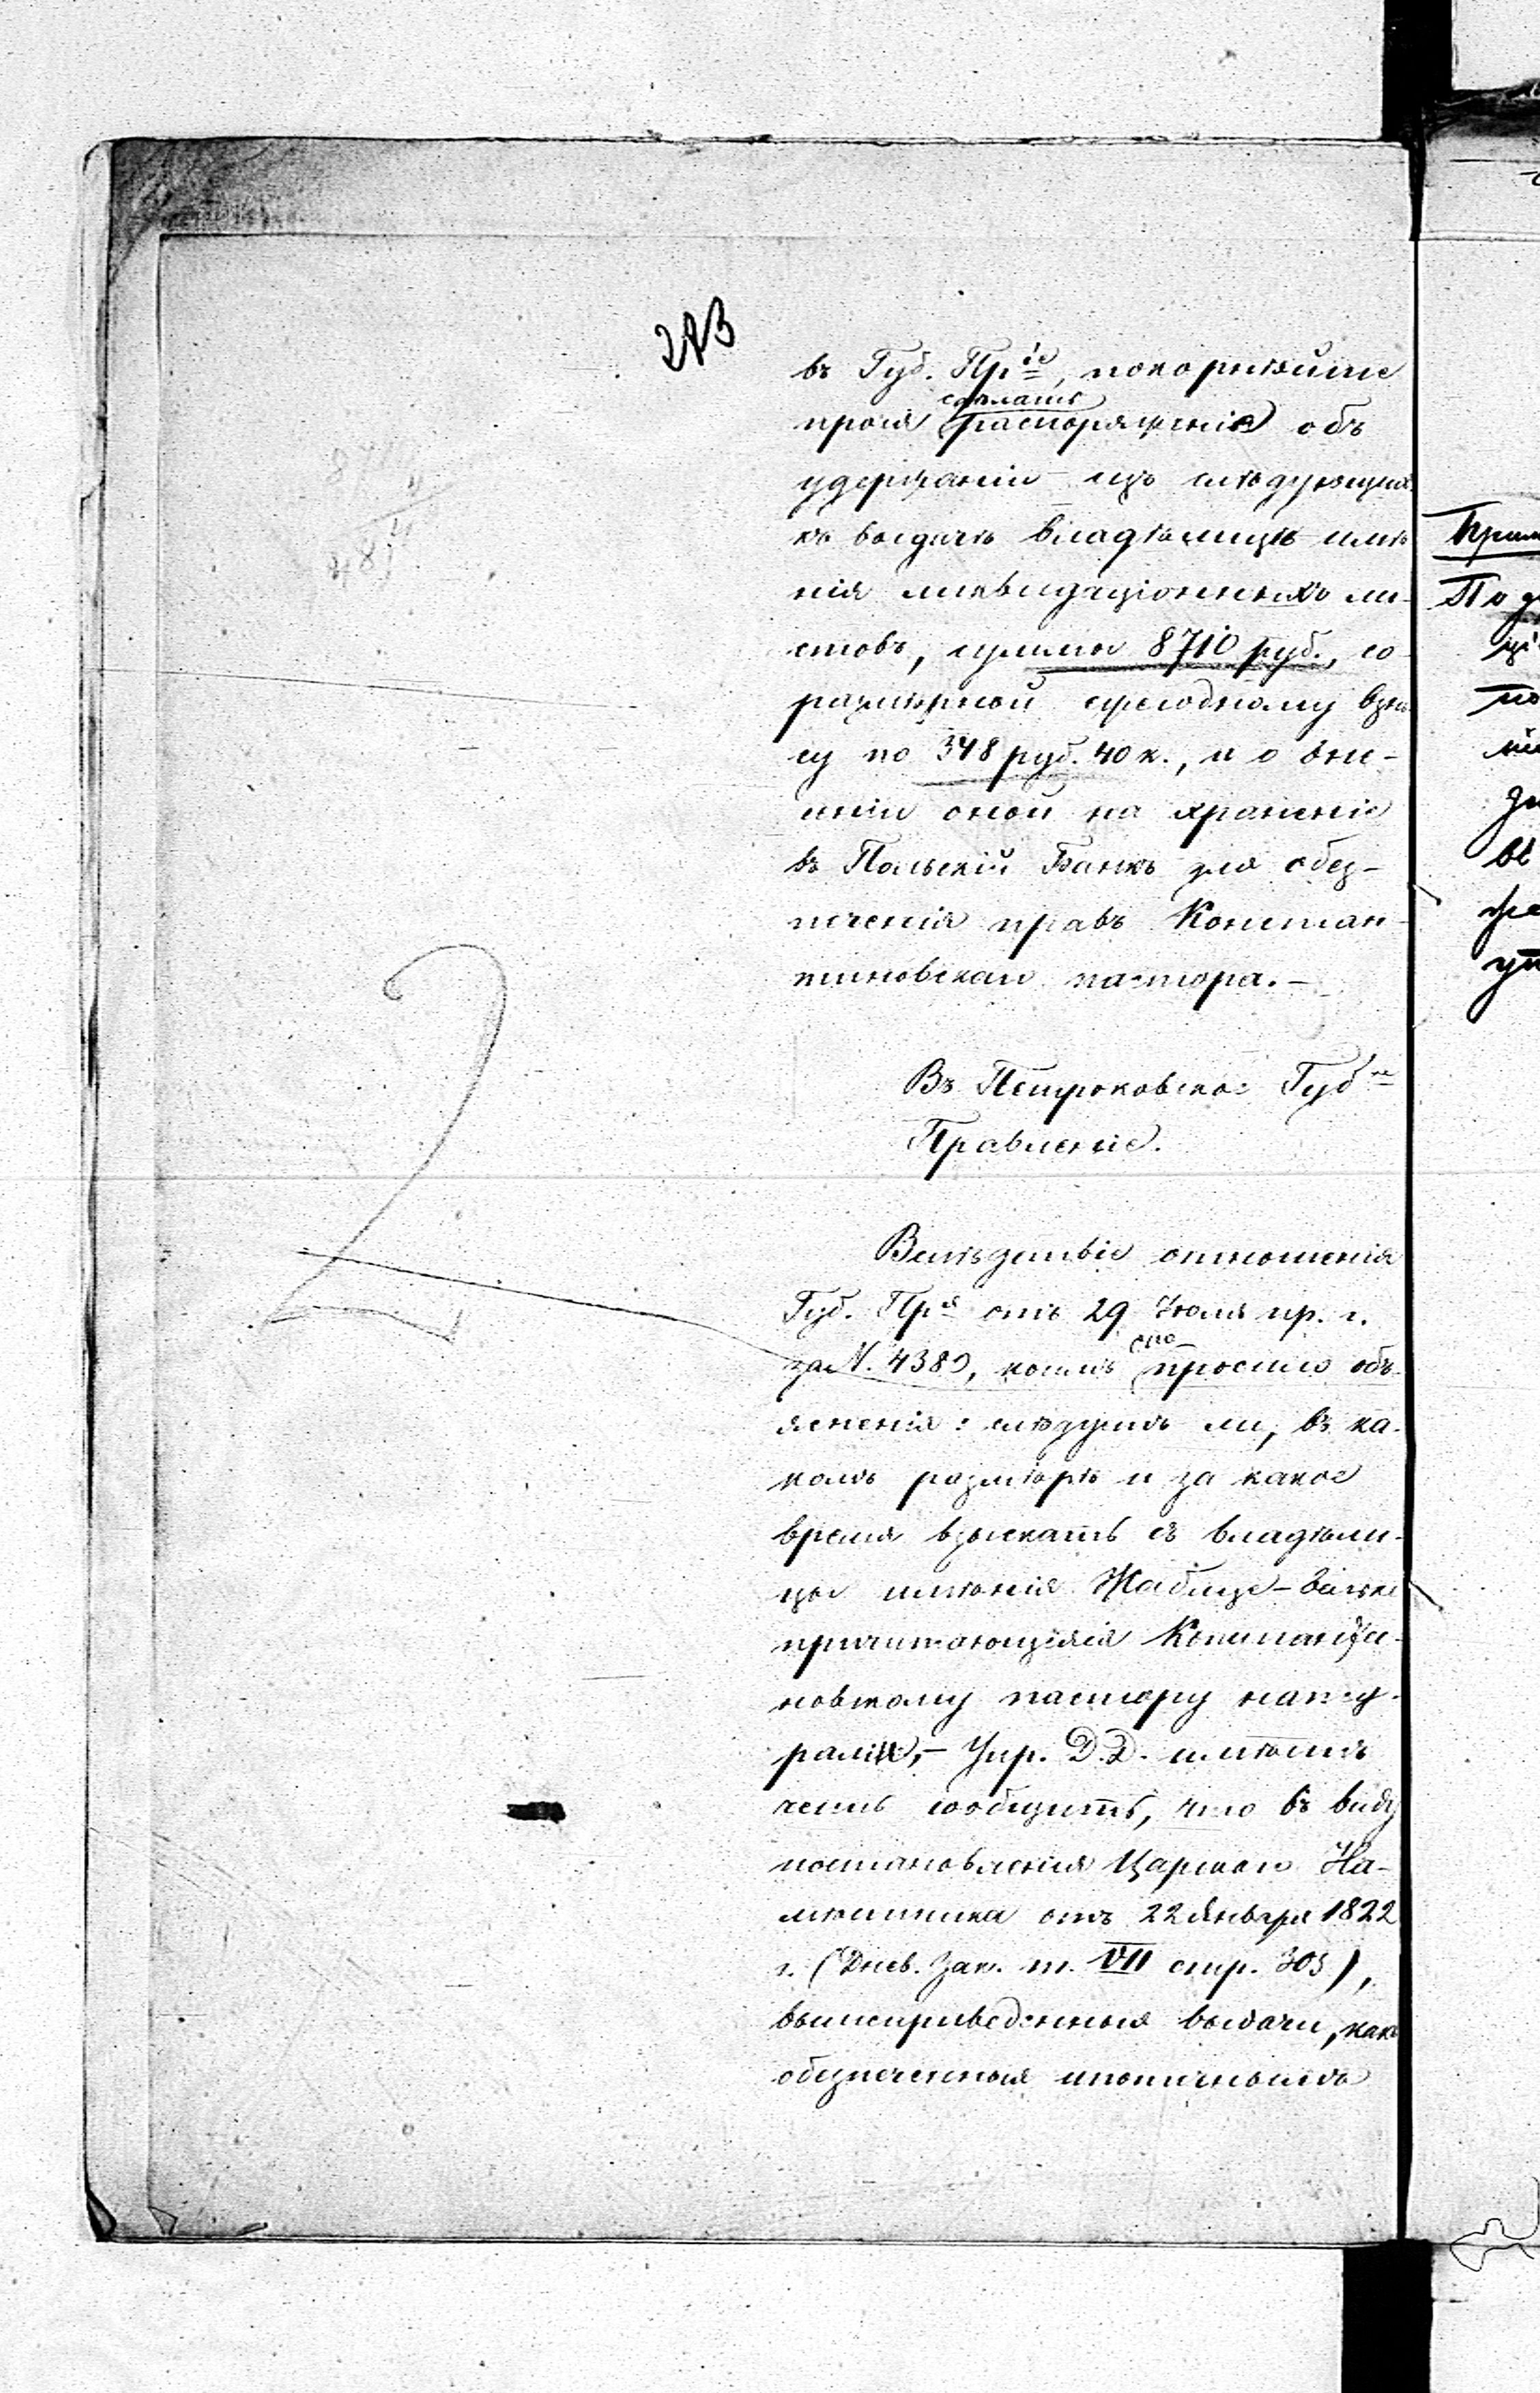 273
въ Губ. Пр<sup>іе</sup>, покорнѣйше
прося сдѣлать распоряженіе объ
удержаніи изъ слѣдующихъ
къ выдачѣ владѣлицѣ имѣ
нія ликвидаціонныхъ ли-
стовъ, суммы 8710 руб., со-
размѣрной ежегодному взно
су по 348 руб. 40 к., и о вне-
сеніи оной на храненіе
въ Польскій Банкъ для обез-
печенія правъ Констан-
тиновскаго пастора.—
Въ Петроковское Губ<sup>ое</sup>
Правленіе.
Вслѣдствіе отношенія
Губ. Пр<sup>я</sup> отъ 29 Іюля пр. г.
за N. 4389, коимъ оно просило объ-
ясненія: слѣдуетъ ли, въ ка-
комъ размѣрѣ и за какое
время взыскать съ владѣли-
цы имѣнія Жабице-
причитающіяся Константи-
новскому пастору нату-
раліи,— Упр. Д.Д. имѣетъ
честь сообщить, что въ виду
постановленія Царскаго На-
мѣстника отъ 22 Января 1822
г. (Днев. Зак. т. VII стр. 303),
вышеприведенныя выдачи, какъ
обезпеченныя ипотечнымъ